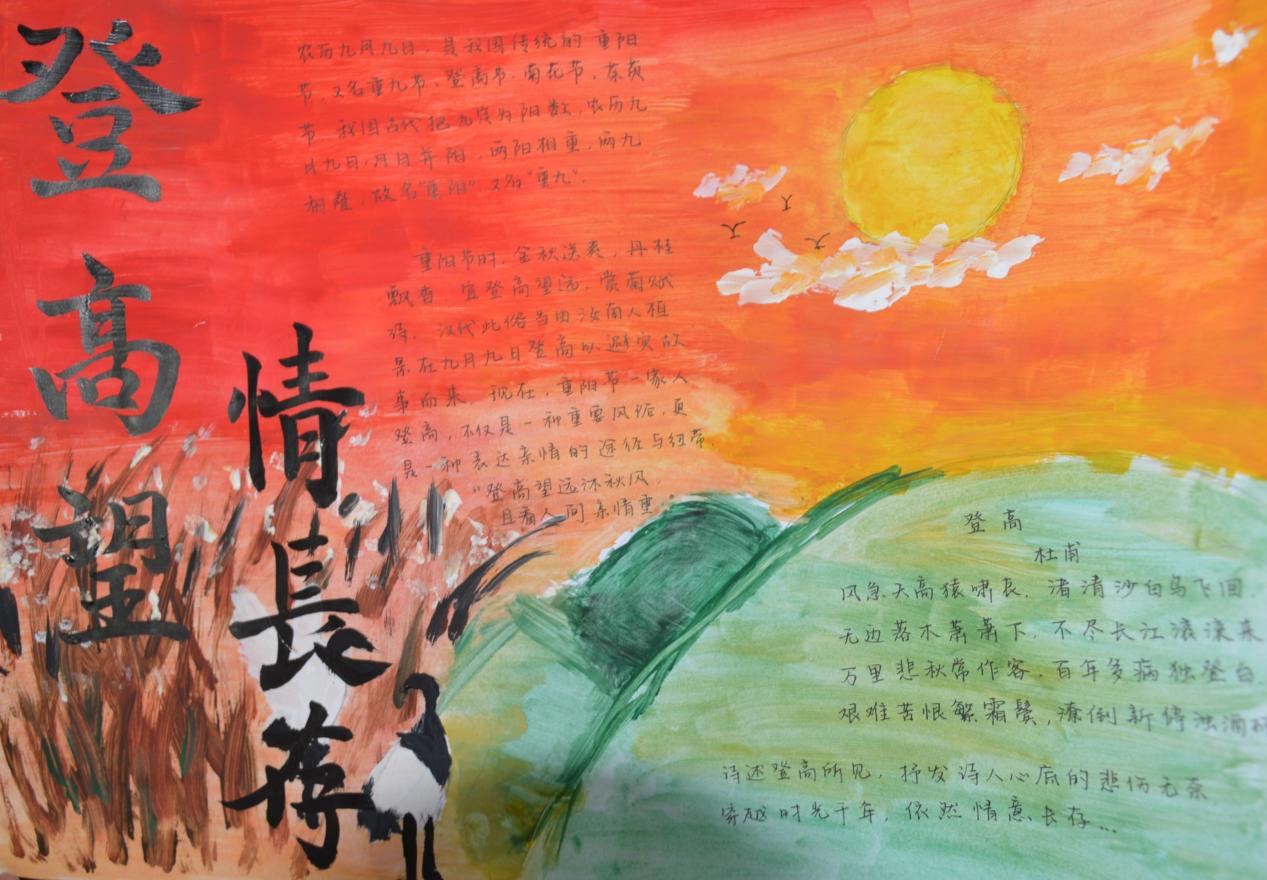 登高望
情長存
农历九月九日，是我国传统的 重阳
节，又名重九节、登高节、菊花节，茱萸
节 我国古代把九定为阳数，农历九
月九日，月日并阳，两阳相重，两九
相叠，故名"重阳"，又名"重九"。
重阳节时，金秋送爽，丹桂
飘香，宜登高望远，赏菊赋
诗，汉代此俗当由汝南人桓
景在九月九日登高以避灾故
事而来，现在，重阳节一家人
登高，不仅是一种重要风俗，更
是一种表达亲情的途径与纽带，
"登高望远沐秋风，
且看人间亲情重"
登高
杜甫
风急天高猿啸哀，渚清沙白鸟飞回，
无边落木萧萧下，不尽长江滚滚来
万里悲秋常作客，百年多病独登台
艰难苦恨繁霜鬓，潦倒新停浊酒杯
诗述登高所见，抒发诗人心底的悲伤无奈
穿越时光千年，依然情意长存...